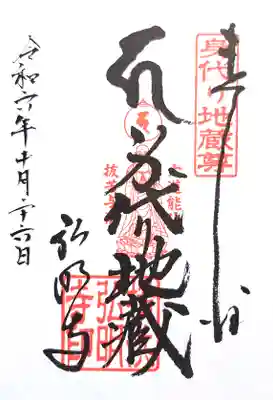 奉拝
身代り地蔵尊
身代り地蔵
弘明寺
弘明寺
令和六年十月二十六日